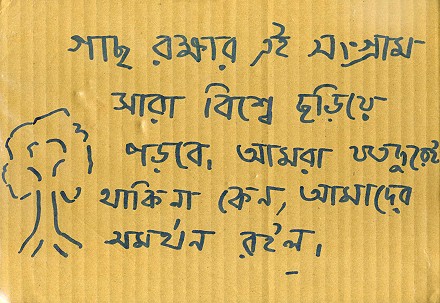 গাছ রক্ষার এই সংগ্রাম
সারা বিশ্বে ছড়িয়ে
পড়বে, আমরা যতদুরেই
থাকিনা কেন, আমাদের
সমর্থন রইল।